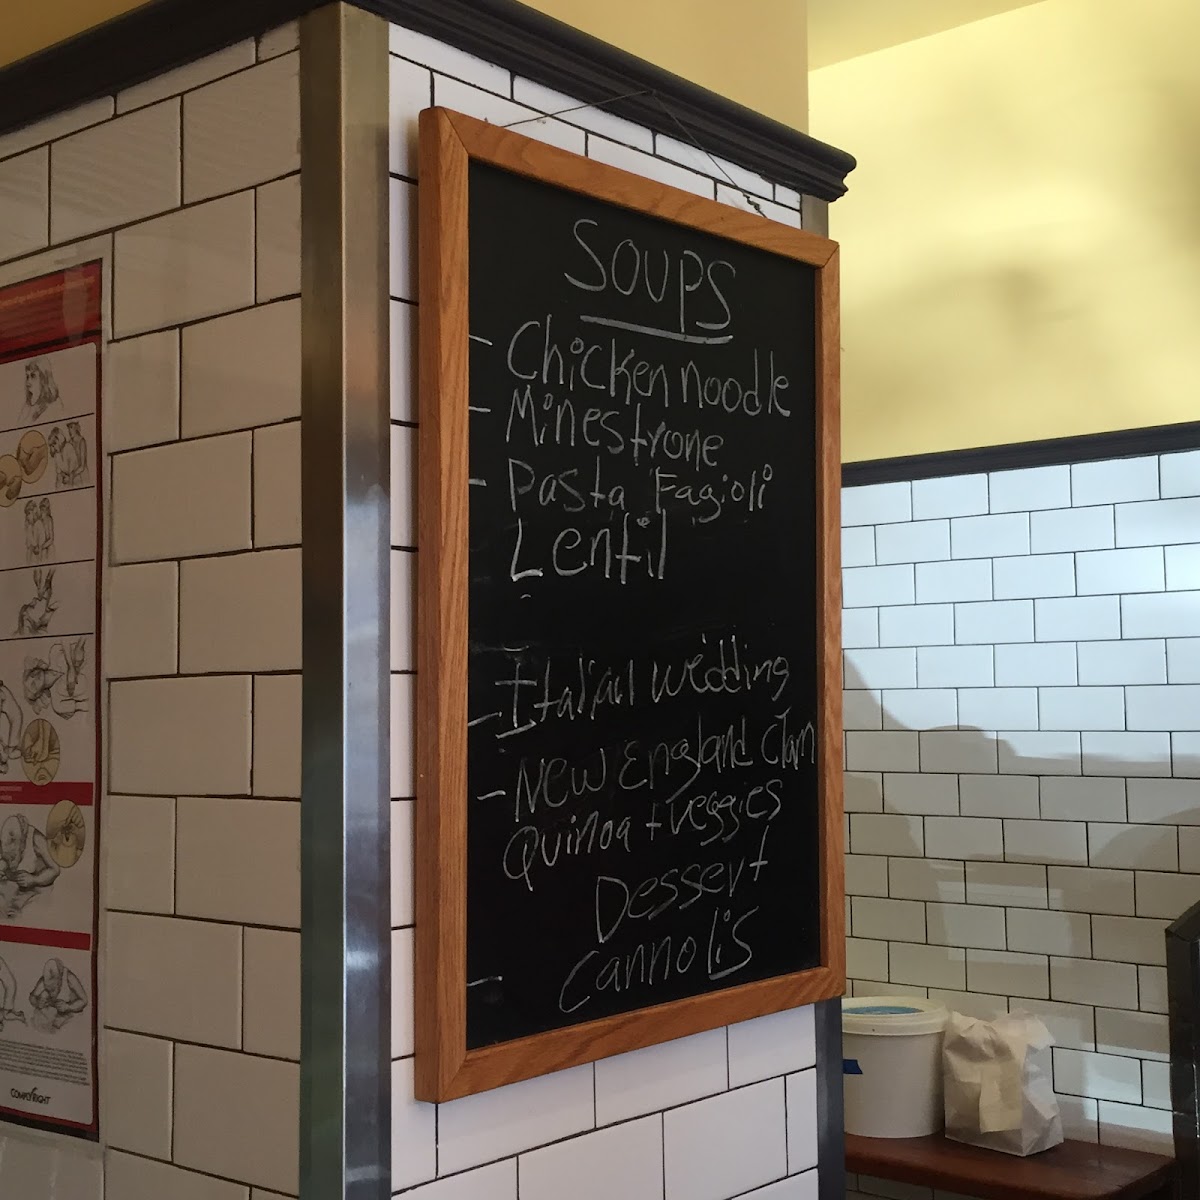 SOUPS
- Chicken noodle
- Minestrone
- Pasta Fagioli
Lentil
- Italian wedding
- New England Clam
Quinoa + veggies
Dessert
- Cannolis
COMPLYRIGHT